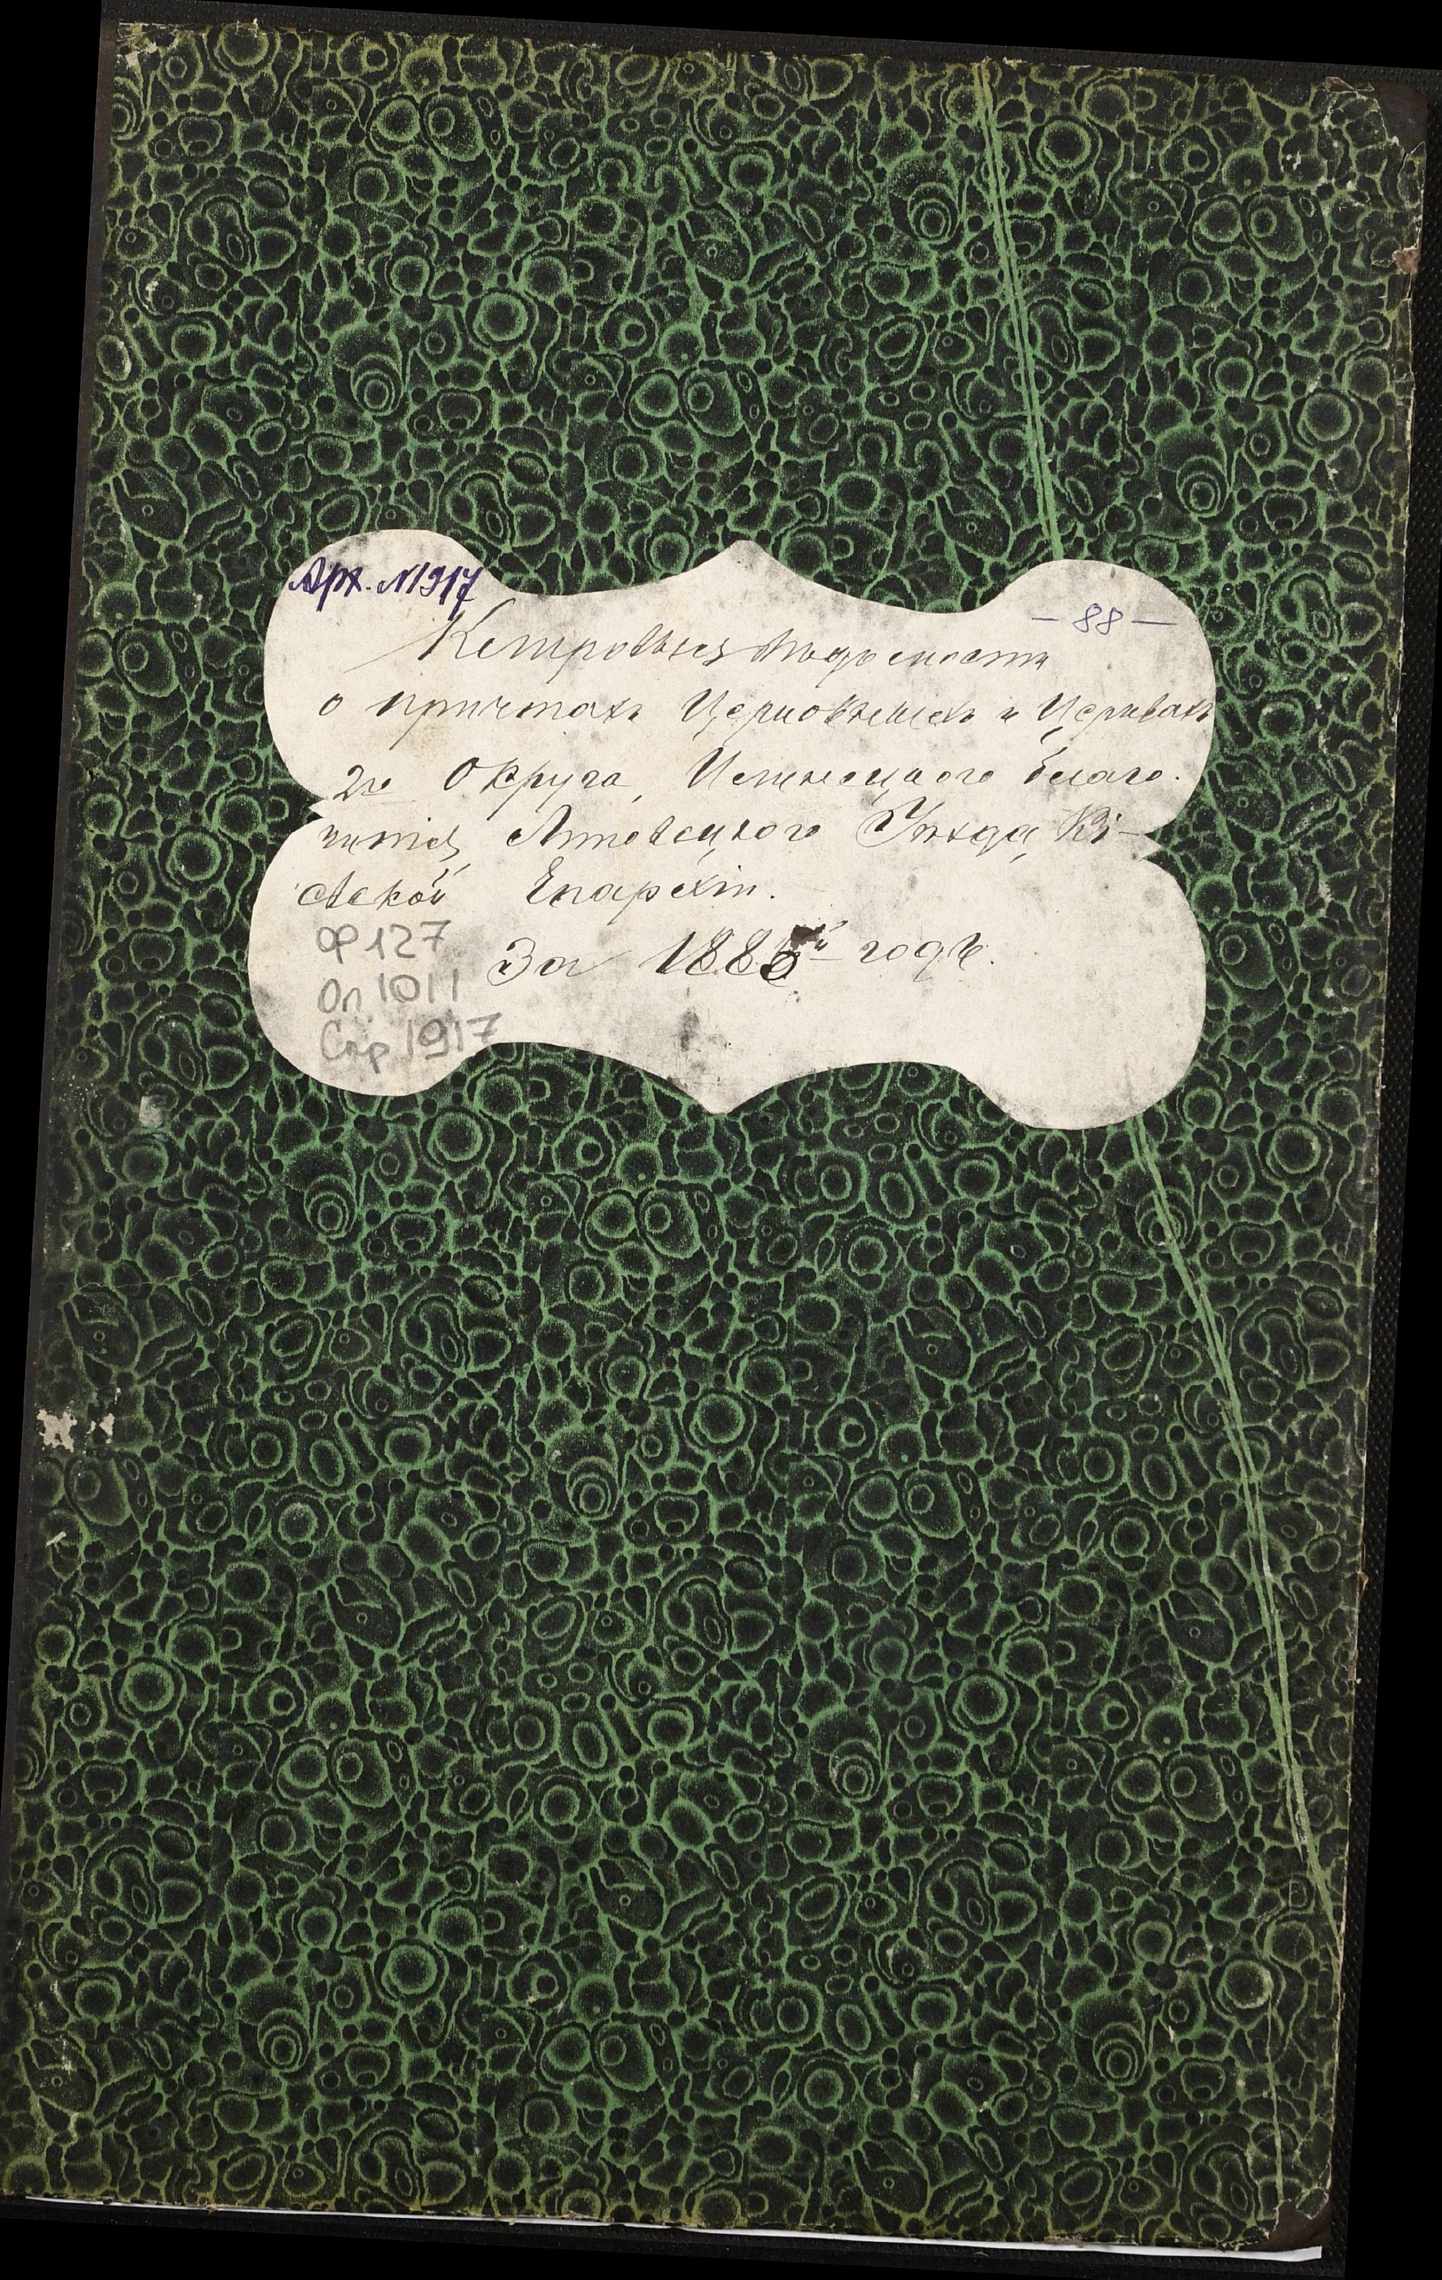 Арх. №1917
— 88 —
Клировыя Вѣдомости
о причтахъ Церковныхъ и Церквахъ
2го Округа, Благо-
чинія, Липовецкого Уѣзда, Кі-
евской Епархіи.
За 188 й годъ.
Ф 127
Оп. 1011
Спр 1917